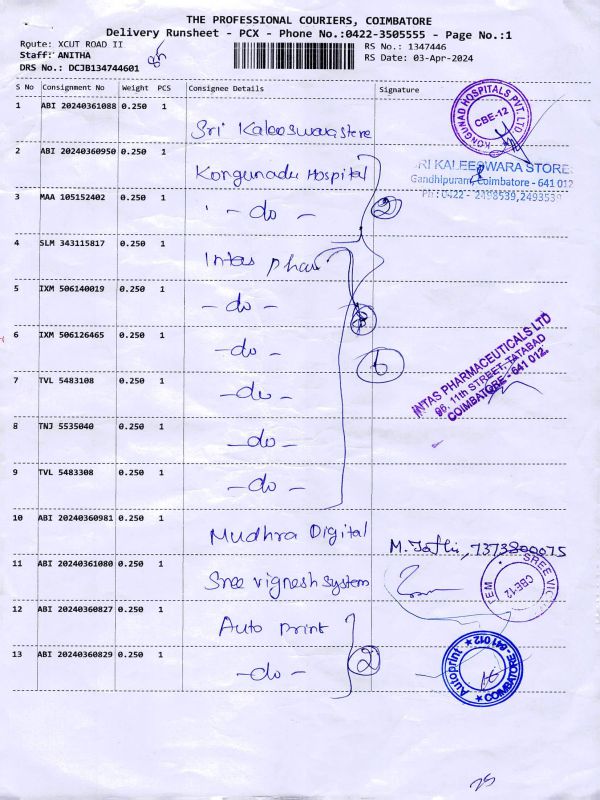 THE PROFESSIONAL COURIERS, COIMBATORE
Delivery Runsheet - PCX - Phone No.:0422-3505555 - Page No.:1
Route: XCUT ROAD II
RS No.: 1347446
Staff: ANITHA
RS Date: 03-Apr-2024
DRS No.: DCJB134744601
S No Consignment No Weight PCS Consignee Details Signature
1 ABI 20240361088 0.250 1 Sri Kaleeswara store
KONGUNAD HOSPITALS PVT. LTD
CBE-12
2 ABI 20240360950 0.250 1 Kongunadu Hospital
SRI KALEESWARA STORES
Gandhipuram, Coimbatore - 641 012
Ph : 0422 - 2498539, 2493539
3 MAA 105152402 0.250 1 - do - 2
4 SLM 343115817 0.250 1 Intas phar
5 IXM 506140019 0.250 1 - do -
6 IXM 506126465 0.250 1 - do - 6
INTAS PHARMACEUTICALS LTD
96, 11th STREET, TATABAD
COIMBATORE - 641 012.
7 TVL 5483108 0.250 1 - do -
8 TNJ 5535040 0.250 1 - do -
9 TVL 5483308 0.250 1 - do -
10 ABI 20240360981 0.250 1 Mudhra Digital
11 ABI 20240361080 0.250 1 Sree vignesh system
SREE
CBE-12
12 ABI 20240360827 0.250 1 Auto print
13 ABI 20240360829 0.250 1 - do - 2
Autoprint
COIMBATORE-641012